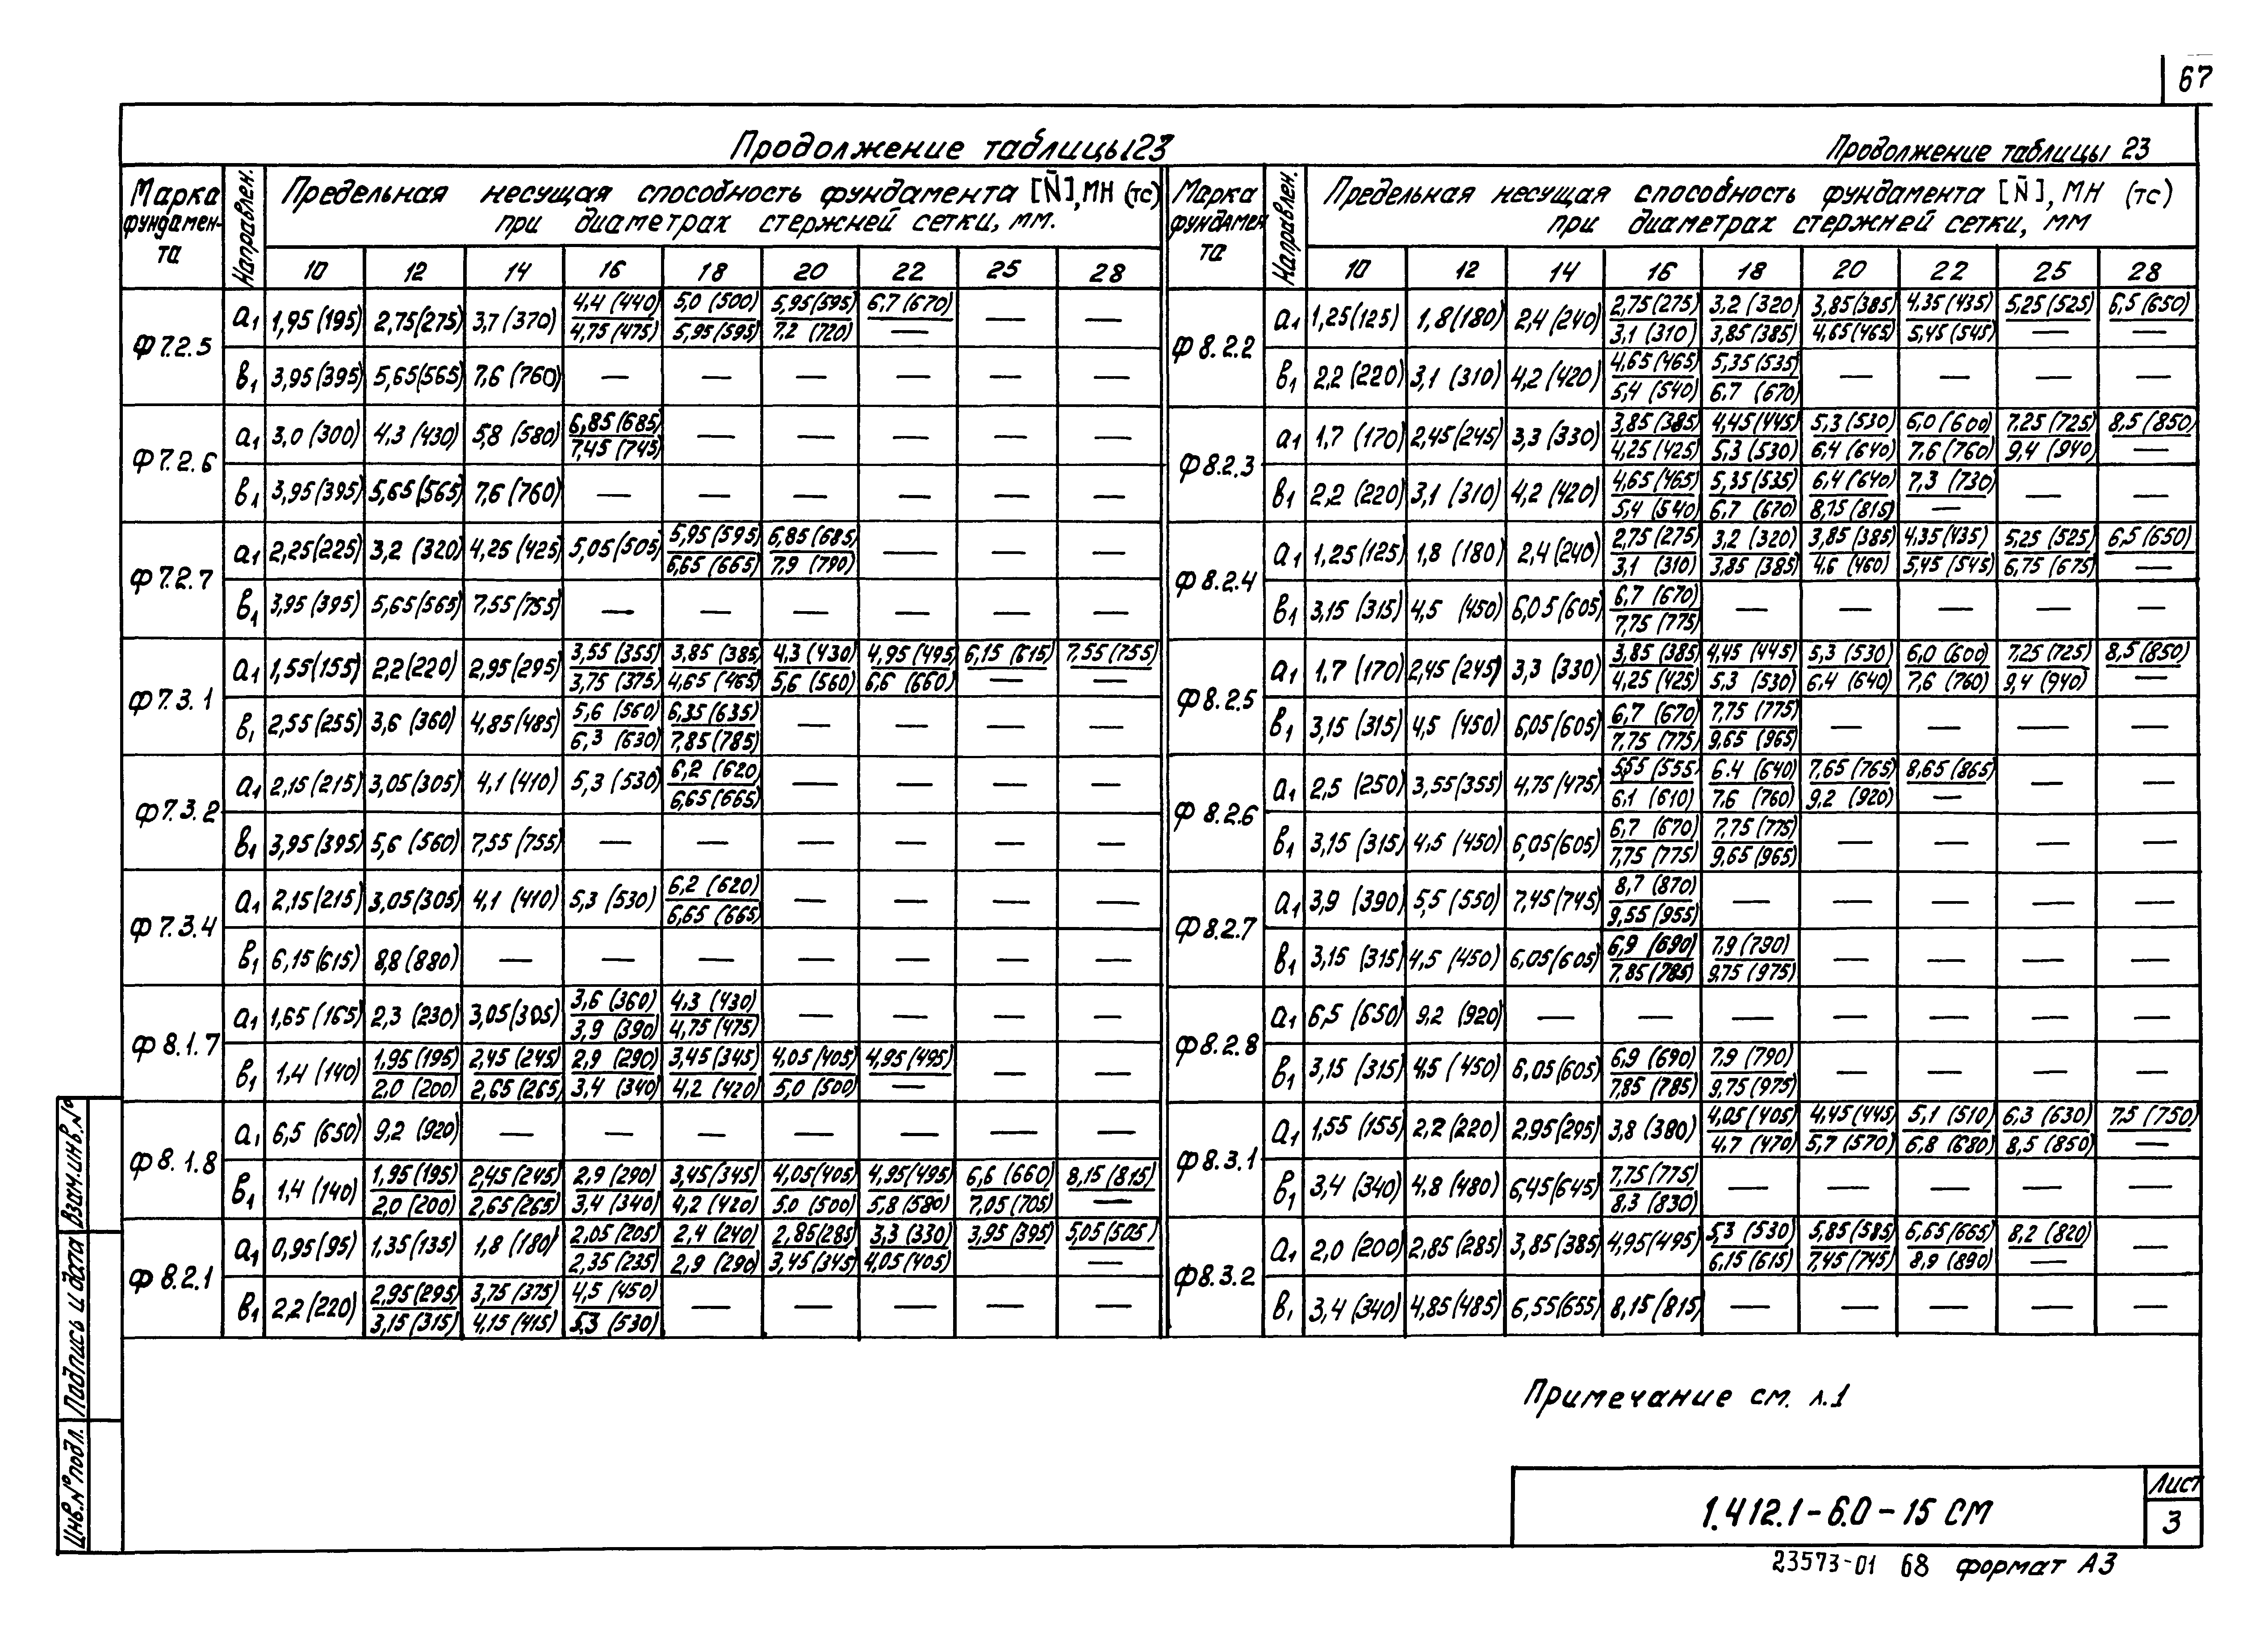 67
Продолжение таблицы 23
Марка фундамента | Направлен. | Предельная несущая способность фундамента [N̄], МН (тс) при диаметрах стержней сетки, мм.
10 | 12 | 14 | 16 | 18 | 20 | 22 | 25 | 28
Ф7.2.5 | a1 | 1,95 (195) | 2,75 (275) | 3,7 (370) | 4,4 (440) / 4,75 (475) | 5,0 (500) / 5,95 (595) | 5,95 (595) / 7,2 (720) | 6,7 (670) / — | — | —
в1 | 3,95 (395) | 5,65 (565) | 7,6 (760) | — | — | — | — | — | —
Ф7.2.6 | a1 | 3,0 (300) | 4,3 (430) | 5,8 (580) | 6,85 (685) / 7,45 (745) | — | — | — | — | —
в1 | 3,95 (395) | 5,65 (565) | 7,6 (760) | — | — | — | — | — | —
Ф7.2.7 | a1 | 2,25 (225) | 3,2 (320) | 4,25 (425) | 5,05 (505) | 5,95 (595) / 6,65 (665) | 6,85 (685) / 7,9 (790) | — | — | —
в1 | 3,95 (395) | 5,65 (565) | 7,55 (755) | — | — | — | — | — | —
Ф7.3.1 | a1 | 1,55 (155) | 2,2 (220) | 2,95 (295) | 3,55 (355) / 3,75 (375) | 3,85 (385) / 4,65 (465) | 4,3 (430) / 5,6 (560) | 4,95 (495) / 6,6 (660) | 6,15 (615) / — | 7,55 (755) / —
в1 | 2,55 (255) | 3,6 (360) | 4,85 (485) | 5,6 (560) / 6,3 (630) | 6,35 (635) / 7,85 (785) | — | — | — | —
Ф7.3.2 | a1 | 2,15 (215) | 3,05 (305) | 4,1 (410) | 5,3 (530) | 6,2 (620) / 6,65 (665) | — | — | — | —
в1 | 3,95 (395) | 5,6 (560) | 7,55 (755) | — | — | — | — | — | —
Ф7.3.4 | a1 | 2,15 (215) | 3,05 (305) | 4,1 (410) | 5,3 (530) | 6,2 (620) / 6,65 (665) | — | — | — | —
в1 | 6,15 (615) | 8,8 (880) | — | — | — | — | — | — | —
Ф8.1.7 | a1 | 1,65 (165) | 2,3 (230) | 3,05 (305) | 3,6 (360) / 3,9 (390) | 4,3 (430) / 4,75 (475) | — | — | — | —
в1 | 1,4 (140) | 1,95 (195) / 2,0 (200) | 2,45 (245) / 2,65 (265) | 2,9 (290) / 3,4 (340) | 3,45 (345) / 4,2 (420) | 4,05 (405) / 5,0 (500) | 4,95 (495) / — | — | —
Ф8.1.8 | a1 | 6,5 (650) | 9,2 (920) | — | — | — | — | — | — | —
в1 | 1,4 (140) | 1,95 (195) / 2,0 (200) | 2,45 (245) / 2,65 (265) | 2,9 (290) / 3,4 (340) | 3,45 (345) / 4,2 (420) | 4,05 (405) / 5,0 (500) | 4,95 (495) / 5,8 (580) | 6,6 (660) / 7,05 (705) | 8,15 (815) / —
Ф8.2.1 | a1 | 0,95 (95) | 1,35 (135) | 1,8 (180) | 2,05 (205) / 2,35 (235) | 2,4 (240) / 2,9 (290) | 2,85 (285) / 3,45 (345) | 3,3 (330) / 4,05 (405) | 3,95 (395) | 5,05 (505) / —
в1 | 2,2 (220) | 2,95 (295) / 3,15 (315) | 3,75 (375) / 4,15 (415) | 4,5 (450) / 5,3 (530) | — | — | — | — | —
Продолжение таблицы 23
Марка фундамента | Направлен. | Предельная несущая способность фундамента [N̄], МН (тс) при диаметрах стержней сетки, мм
10 | 12 | 14 | 16 | 18 | 20 | 22 | 25 | 28
Ф8.2.2 | a1 | 1,25 (125) | 1,8 (180) | 2,4 (240) | 2,75 (275) / 3,1 (310) | 3,2 (320) / 3,85 (385) | 3,85 (385) / 4,65 (465) | 4,35 (435) / 5,45 (545) | 5,25 (525) / — | 6,5 (650) / —
в1 | 2,2 (220) | 3,1 (310) | 4,2 (420) | 4,65 (465) / 5,4 (540) | 5,35 (535) / 6,7 (670) | — | — | — | —
Ф8.2.3 | a1 | 1,7 (170) | 2,45 (245) | 3,3 (330) | 3,85 (385) / 4,25 (425) | 4,45 (445) / 5,3 (530) | 5,3 (530) / 6,4 (640) | 6,0 (600) / 7,6 (760) | 7,25 (725) / 9,4 (940) | 8,5 (850) / —
в1 | 2,2 (220) | 3,1 (310) | 4,2 (420) | 4,65 (465) / 5,4 (540) | 5,35 (535) / 6,7 (670) | 6,4 (640) / 8,15 (815) | 7,3 (730) / — | — | —
Ф8.2.4 | a1 | 1,25 (125) | 1,8 (180) | 2,4 (240) | 2,75 (275) / 3,1 (310) | 3,2 (320) / 3,85 (385) | 3,85 (385) / 4,6 (460) | 4,35 (435) / 5,45 (545) | 5,25 (525) / 6,75 (675) | 6,5 (650) / —
в1 | 3,15 (315) | 4,5 (450) | 6,05 (605) | 6,7 (670) / 7,75 (775) | — | — | — | — | —
Ф8.2.5 | a1 | 1,7 (170) | 2,45 (245) | 3,3 (330) | 3,85 (385) / 4,25 (425) | 4,45 (445) / 5,3 (530) | 5,3 (530) / 6,4 (640) | 6,0 (600) / 7,6 (760) | 7,25 (725) / 9,4 (940) | 8,5 (850) / —
в1 | 3,15 (315) | 4,5 (450) | 6,05 (605) | 6,7 (670) / 7,75 (775) | 7,75 (775) / 9,65 (965) | — | — | — | —
Ф8.2.6 | a1 | 2,5 (250) | 3,55 (355) | 4,75 (475) | 5,55 (555) / 6,1 (610) | 6.4 (640) / 7,6 (760) | 7,65 (765) / 9,2 (920) | 8,65 (865) / — | — | —
в1 | 3,15 (315) | 4,5 (450) | 6,05 (605) | 6,7 (670) / 7,75 (775) | 7,75 (775) / 9,65 (965) | — | — | — | —
Ф8.2.7 | a1 | 3,9 (390) | 5,5 (550) | 7,45 (745) | 8,7 (870) / 9,55 (955) | — | — | — | — | —
в1 | 3,15 (315) | 4,5 (450) | 6,05 (605) | 6,9 (690) / 7,85 (785) | 7,9 (790) / 9,75 (975) | — | — | — | —
Ф8.2.8 | a1 | 6,5 (650) | 9,2 (920) | — | — | — | — | — | — | —
в1 | 3,15 (315) | 4,5 (450) | 6,05 (605) | 6,9 (690) / 7,85 (785) | 7,9 (790) / 9,75 (975) | — | — | — | —
Ф8.3.1 | a1 | 1,55 (155) | 2,2 (220) | 2,95 (295) | 3,8 (380) | 4,05 (405) / 4,7 (470) | 4,45 (445) / 5,7 (570) | 5,1 (510) / 6,8 (680) | 6,3 (630) / 8,5 (850) | 7,5 (750) / —
в1 | 3,4 (340) | 4,8 (480) | 6,45 (645) | 7,75 (775) / 8,3 (830) | — | — | — | — | —
Ф8.3.2 | a1 | 2,0 (200) | 2,85 (285) | 3,85 (385) | 4,95 (495) | 5,3 (530) / 6,15 (615) | 5,85 (585) / 7,45 (745) | 6,65 (665) / 8,9 (890) | 8,2 (820) / — | —
в1 | 3,4 (340) | 4,85 (485) | 6,55 (655) | 8,15 (815) | — | — | — | — | —
Примечание см. л.1
Инв.№подл. Подпись и дата Взам.инв.№
1.412.1-6.0-15 СМ
Лист
3
23573-01 68 формат А3